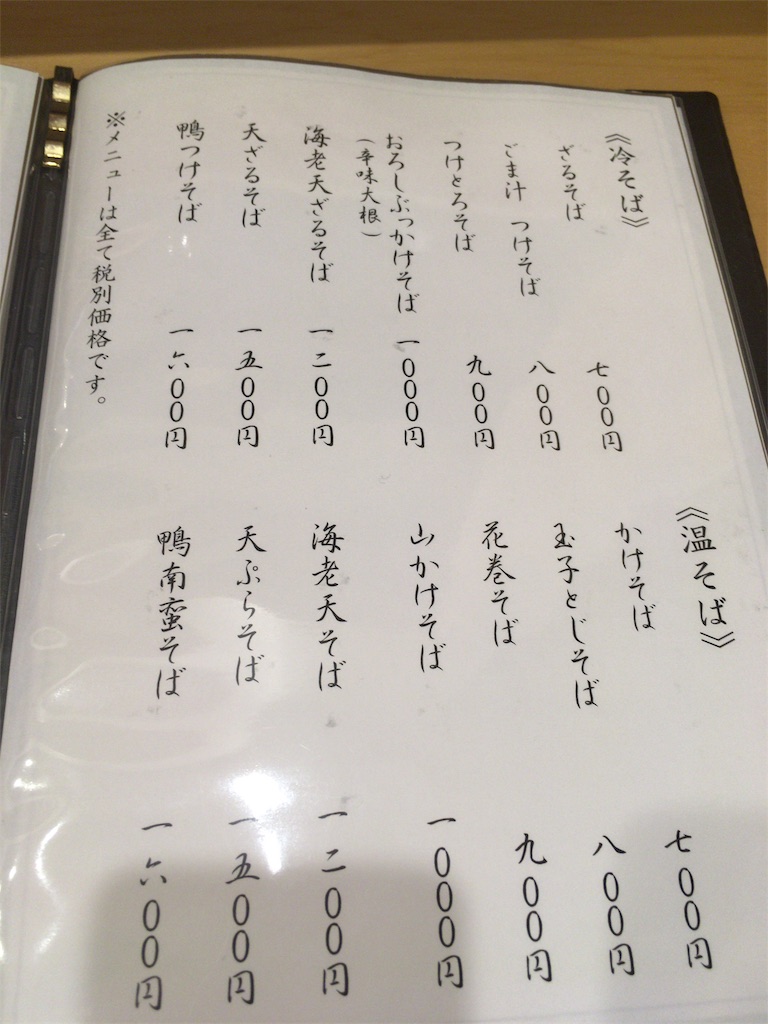 《冷そば》
ざるそば 七〇〇円
ごま汁 つけそば 八〇〇円
つけとろそば 九〇〇円
おろしぶっかけそば 一〇〇〇円
(辛味大根)
海老天ざるそば 一二〇〇円
天ざるそば 一五〇〇円
鴨つけそば 一六〇〇円
※メニューは全て税別価格です。
《温そば》
かけそば 七〇〇円
玉子とじそば 八〇〇円
花巻そば 九〇〇円
山かけそば 一〇〇〇円
海老天そば 一二〇〇円
天ぷらそば 一五〇〇円
鴨南蛮そば 一六〇〇円